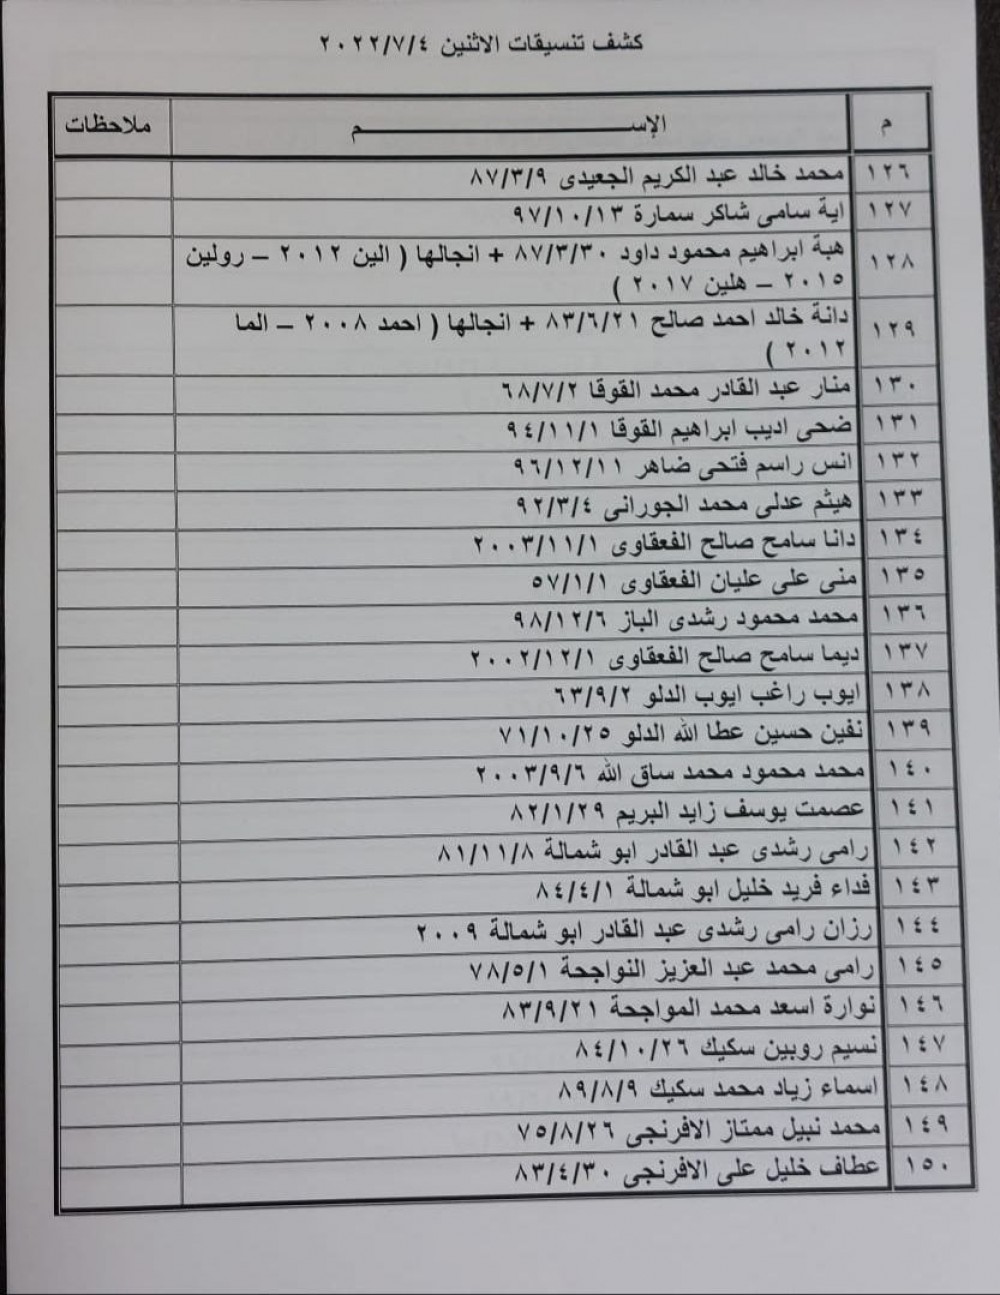 كشف تنسيقات الاثنين ٢٠٢٢/٧/٤
م الإســـــــــــم ملاحظات
١٢٦ محمد خالد عبد الكريم الجعيدى ٨٧/٣/٩
١٢٧ اية سامى شاكر سمارة ٩٧/١٠/١٣
١٢٨ هبة ابراهيم محمود داود ٨٧/٣/٣٠ + انجالها ( الين ٢٠١٢ – رولين
٢٠١٥ – هلين ٢٠١٧ )
١٢٩ دانة خالد احمد صالح ٨٣/٦/٢١ + انجالها ( احمد ٢٠٠٨ – الما
٢٠١٢ )
١٣٠ منار عبد القادر محمد القوقا ٦٨/٧/٢
١٣١ ضحى اديب ابراهيم القوقا ٩٤/١١/١
١٣٢ انس راسم فتحى ضاهر ٩٦/١٢/١١
١٣٣ هيثم عدلى محمد الجورانى ٩٢/٣/٤
١٣٤ دانا سامح صالح الفعقاوى ٢٠٠٣/١١/١
١٣٥ منى على عليان الفعقاوى ٥٧/١/١
١٣٦ محمد محمود رشدى الباز ٩٨/١٢/٦
١٣٧ ديما سامح صالح الفعقاوى ٢٠٠٢/١٢/١
١٣٨ ايوب راغب ايوب الدلو ٦٣/٩/٢
١٣٩ نفين حسين عطا الله الدلو ٧١/١٠/٢٥
١٤٠ محمد محمود محمد ساق الله ٢٠٠٣/٩/٦
١٤١ عصمت يوسف زايد البريم ٨٢/١/٢٩
١٤٢ رامى رشدى عبد القادر ابو شمالة ٨١/١١/٨
١٤٣ فداء فريد خليل ابو شمالة ٨٤/٤/١
١٤٤ رزان رامى رشدى عبد القادر ابو شمالة ٢٠٠٩
١٤٥ رامى محمد عبد العزيز النواجحة ٧٨/٥/١
١٤٦ نوارة اسعد محمد المواجحة ٨٣/٩/٢١
١٤٧ نسيم روبين سكيك ٨٤/١٠/٢٦
١٤٨ اسماء زياد محمد سكيك ٨٩/٨/٩
١٤٩ محمد نبيل ممتاز الافرنجى ٧٥/٨/٢٦
١٥٠ عطاف خليل على الافرنجى ٨٣/٤/٣٠